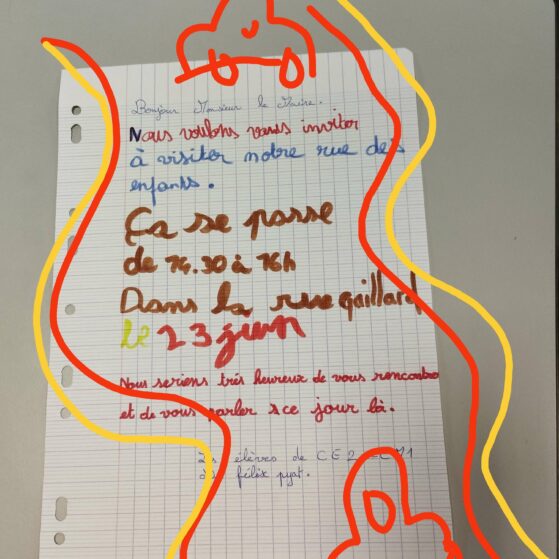 Bonjour Monsieur le Maire.
Nous voulons vous inviter
à visiter notre rue des
enfants.
Ça se passe
de 14.30 à 16h
Dans la rue gaillard
le 23 juin
Nous seriens très heureux de vous rencontre
et de vous parler sce jour là.
Les élèves de CE2 CM1
de félix pyat.